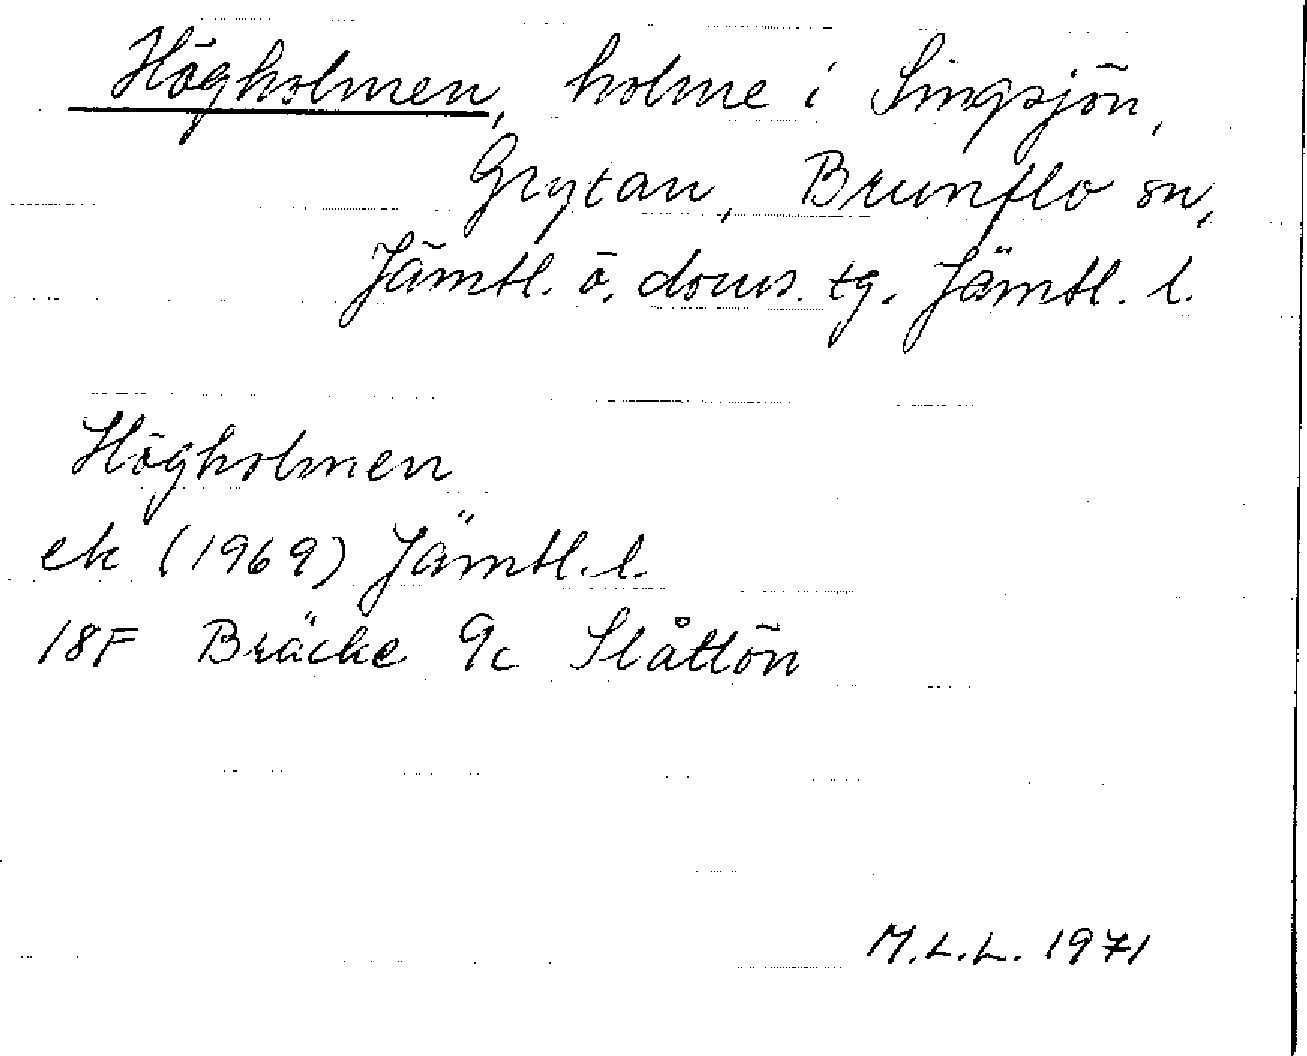 Högholmen, holme i Singsjön,
Grytan, Brunflo sn,
Jämtl. ö. doms. tg. Jämtl. l.
Högholmen
ek (1969) Jämtl. l.
18F Bräcke 9c Slåttön
M.L.L. 1971